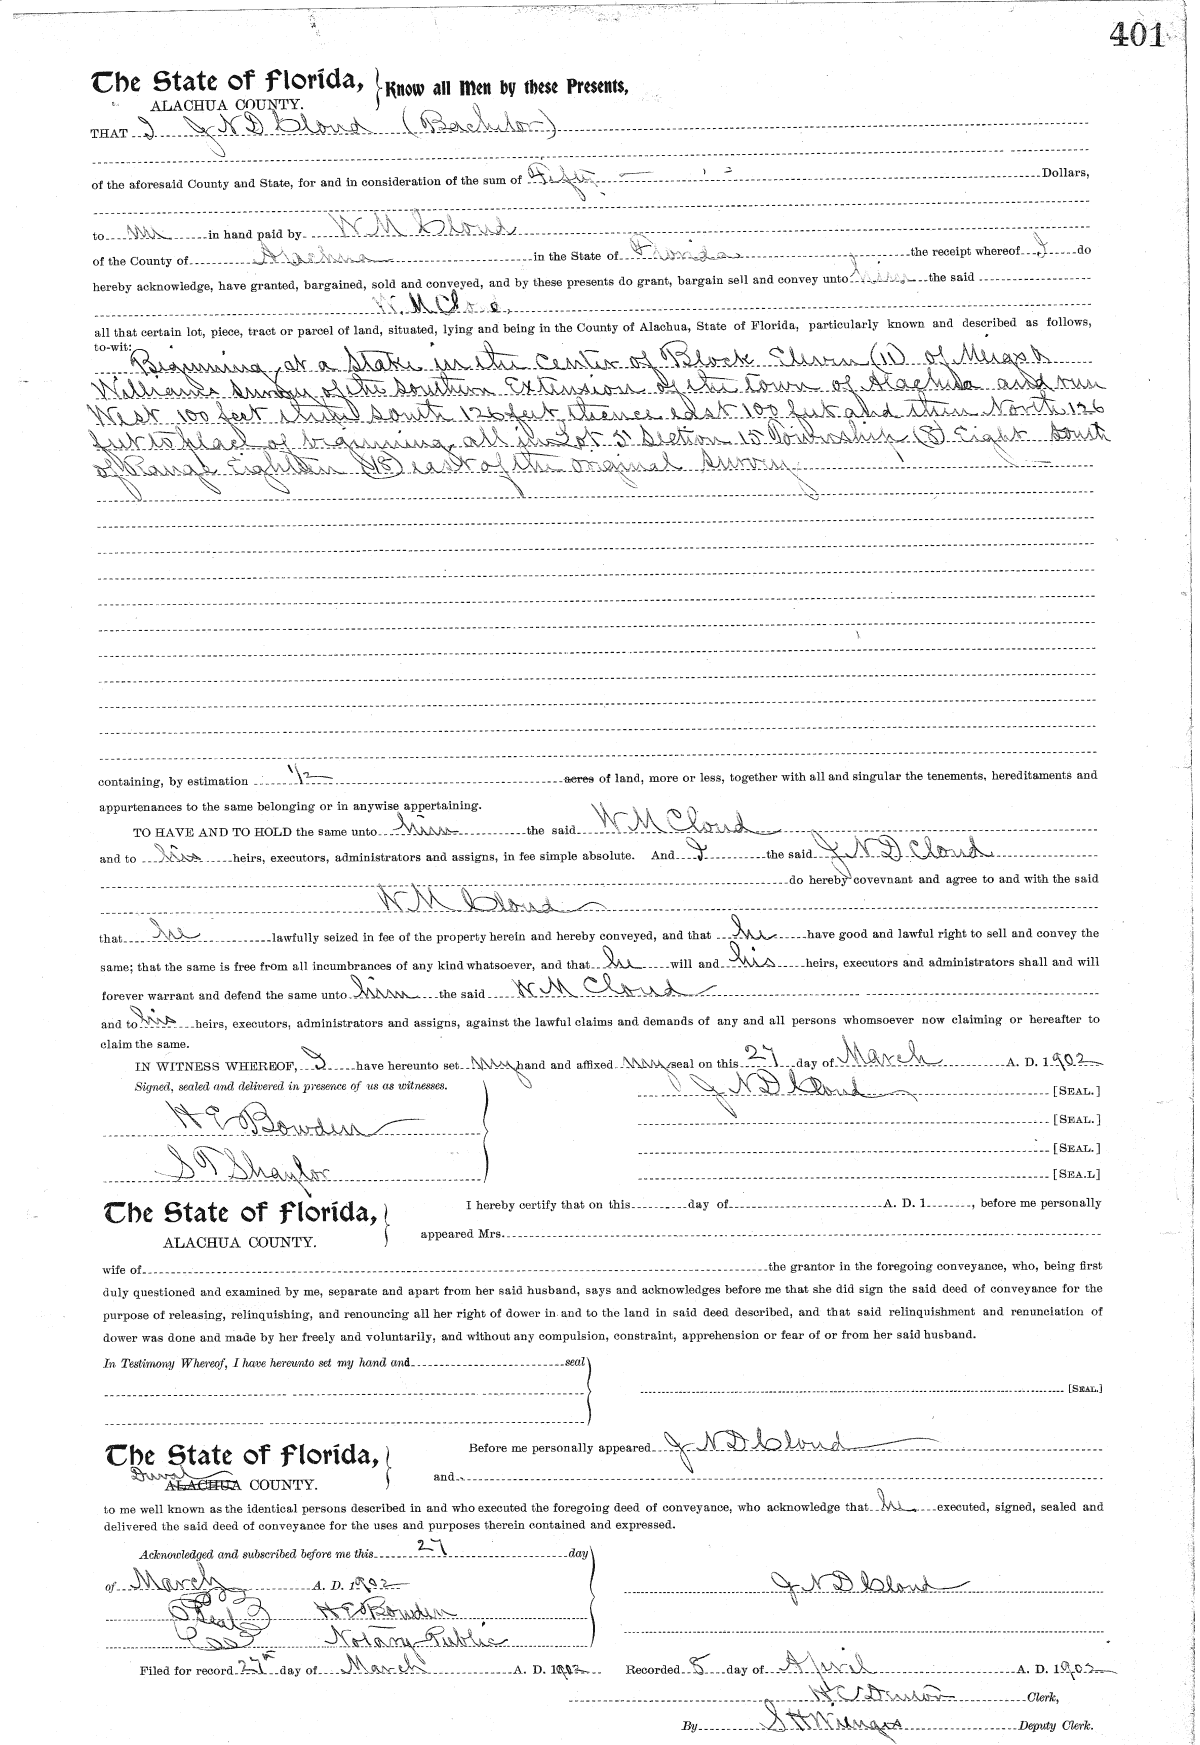 401
The State of Florida, Know all Men by these Presents,
ALACHUA COUNTY.
THAT I J N D Cloud (Bachelor)
of the aforesaid County and State, for and in consideration of the sum of Fifty Dollars,
to me in hand paid by W M Cloud
of the County of Alachua in the State of Florida the receipt whereof I do
hereby acknowledge, have granted, bargained, sold and conveyed, and by these presents do grant, bargain sell and convey unto him the said
W. M Cloud,
all that certain lot, piece, tract or parcel of land, situated, lying and being in the County of Alachua, State of Florida, particularly known and described as follows,
to-wit:
Beginning at a Stake in the Center of Block Eleven (11) of Meigs &
Williams Survey of the Southern Extension of the town of Alachua and run
West 100 feet thence South 126 feet thence east 100 feet and then North 126
feet to place of beginning, all in Lot 3 Section 15 Township (8) Eight South
of Range Eighteen (18) east of the original Survey.
containing, by estimation 1/2 acres of land, more or less, together with all and singular the tenements, hereditaments and
appurtenances to the same belonging or in anywise appertaining.
TO HAVE AND TO HOLD the same unto him the said W M Cloud
and to his heirs, executors, administrators and assigns, in fee simple absolute. And I the said J N D Cloud
do hereby covevnant and agree to and with the said
W M Cloud
that he lawfully seized in fee of the property herein and hereby conveyed, and that he have good and lawful right to sell and convey the
same; that the same is free from all incumbrances of any kind whatsoever, and that he will and his heirs, executors and administrators shall and will
forever warrant and defend the same unto him the said W M Cloud
and to his heirs, executors, administrators and assigns, against the lawful claims and demands of any and all persons whomsoever now claiming or hereafter to
claim the same.
IN WITNESS WHEREOF, I have hereunto set my hand and affixed my seal on this 27 day of March A. D. 1902
Signed, sealed and delivered in presence of us as witnesses. J N D Cloud [SEAL.]
H E Bowden [SEAL.]
[SEAL.]
S T Shaylor [SEA.L]
The State of Florida, I hereby certify that on this day of A. D. 1 , before me personally
ALACHUA COUNTY. appeared Mrs.
wife of the grantor in the foregoing conveyance, who, being first
duly questioned and examined by me, separate and apart from her said husband, says and acknowledges before me that she did sign the said deed of conveyance for the
purpose of releasing, relinquishing, and renouncing all her right of dower in and to the land in said deed described, and that said relinquishment and renunciation of
dower was done and made by her freely and voluntarily, and without any compulsion, constraint, apprehension or fear of or from her said husband.
In Testimony Whereof, I have hereunto set my hand and seal
[SEAL.]
The State of Florida, Before me personally appeared J N D Cloud
Duval
ALACHUA COUNTY. and
to me well known as the identical persons described in and who executed the foregoing deed of conveyance, who acknowledge that he executed, signed, sealed and
delivered the said deed of conveyance for the uses and purposes therein contained and expressed.
Acknowledged and subscribed before me this 27 day
of March A. D. 1902 J N D Cloud
Seal H E Bowden
Notary Public
Filed for record 27th day of March A. D. 1902 Recorded 5 day of April A. D. 1902
H C Denton Clerk,
By S H Wienges Deputy Clerk.